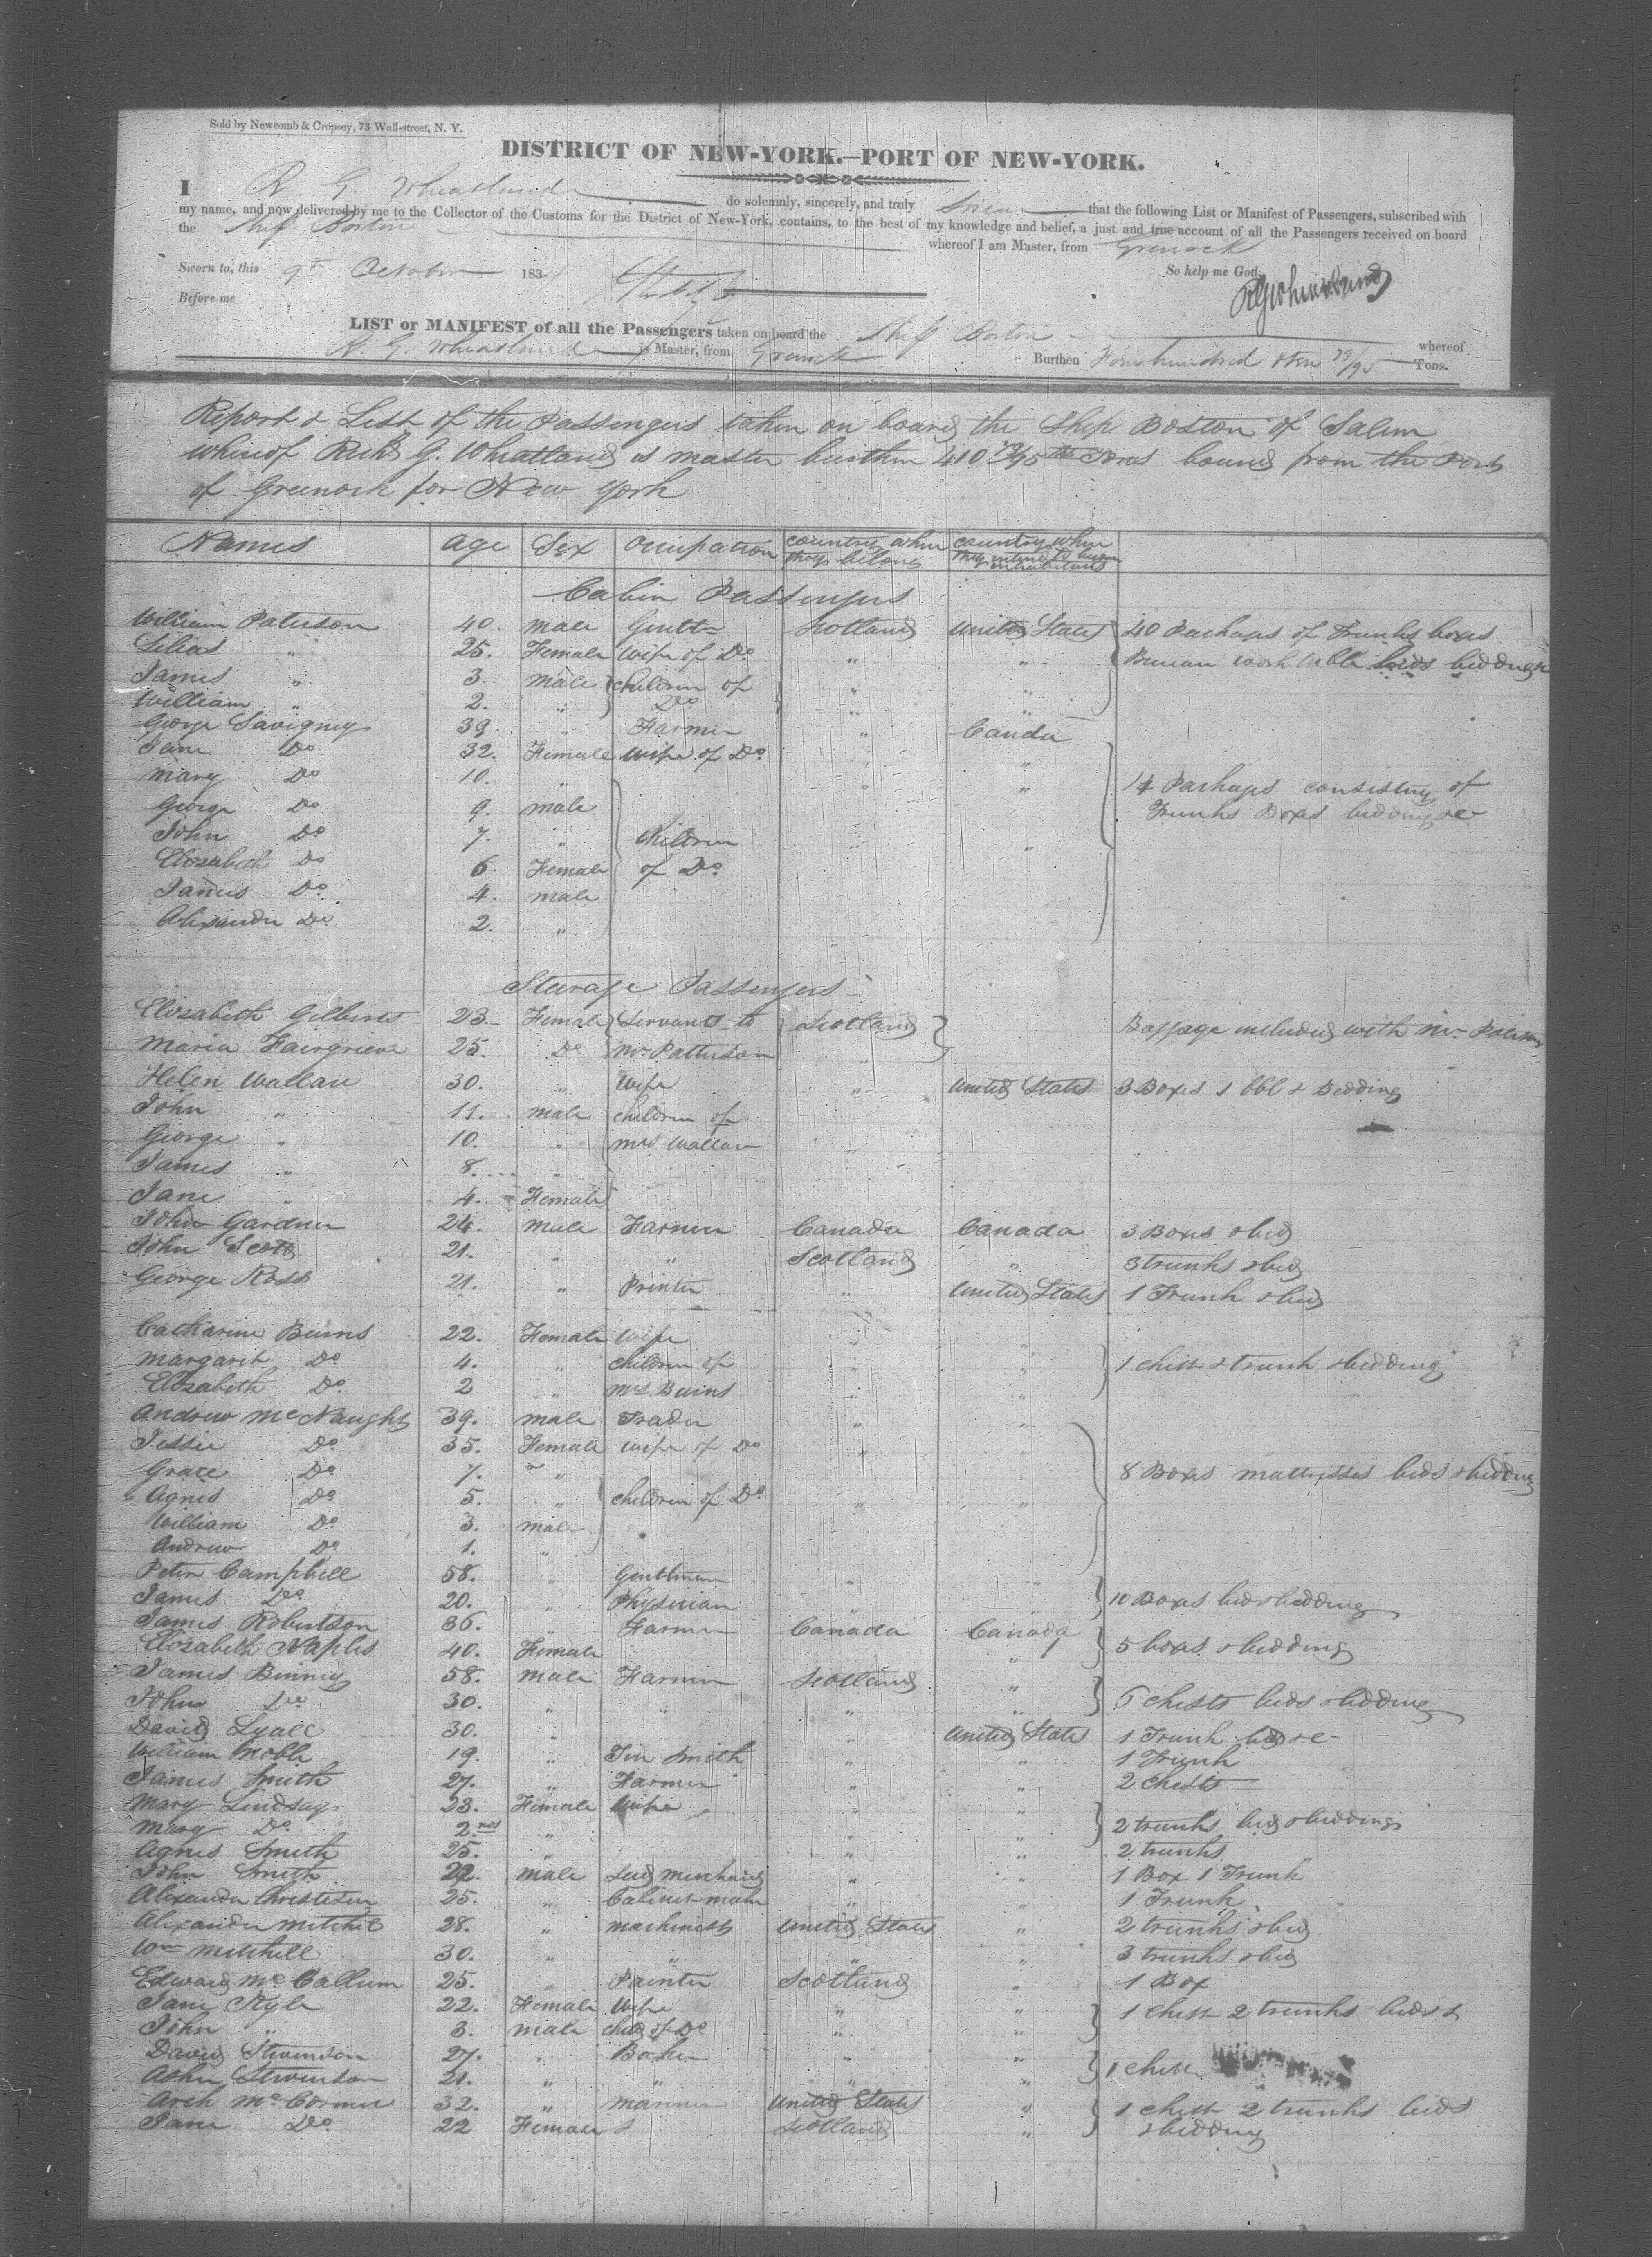 Sold by Newcomb & Cropsey, 73 Wall-street, N. Y.
DISTRICT OF NEW-YORK.—PORT OF NEW-YORK.
I R. G. Wheatland do solemnly, sincerely, and truly Swear that the following List or Manifest of Passengers, subscribed with
my name, and now delivered by me to the Collector of the Customs for the District of New-York, contains, to the best of my knowledge and belief, a just and true account of all the Passengers received on board
the Ship Boston whereof I am Master, from Grenock
Sworn to, this 9th October 183 So help me God.
Before me RGWheatland
LIST or MANIFEST of all the Passengers taken on board the Ship Boston whereof
R. G. Wheatland is Master, from Grenock Burthen Four hundred & ten 79/95 Tons.
Report & List of the Passengers taken on board the Ship Boston of Salem
whereof Richd G. Wheatland is master burthen 410 79/95ths Tons bound from the Port
of Greenock for New York
Names Age Sex Occupation country when they belong country when they intend to become inhabitants
Cabin Passengers
William Paterson 40. male Gentln Scotland United States 40 Packages of Trunks boxes
Lilias " 25. Female Wife of Do " " Bureau work table beds bedding &c
James " 3. male children of " "
William " 2. " Do " "
George Savigney 39. " Farmer " Canda
Jane Do 32. Female wife of Do " "
Mary Do 10. " " " 14 Packages consisting of
George Do 9. male Trunks Boxes bedding &c
John Do 7. " Children " "
Elizabeth Do 6. Female of Do
James Do 4. male
Alexander Do 2. "
Steerage Passengers
Elizabeth Gilbert 23. Female Servants to Scotland Baggage included with Mr Paterson
Maria Fairgrieve 25. Do Mr Patterson "
Helen Wallace 30. " Wife " United States 3 Boxes 1 bbl & Bedding
John " 11. male children of "
George " 10. " Mrs Wallace "
James " 8. "
Jane " 4. Female
John Gardner 24. male Farmer Canada Canada 3 Boxes & bed
John Scott 21. " " Scotland " 3 trunks & bed
George Ross 21. " Printer " United States 1 Trunk & bed
Catharine Burns 22. Female wife " "
Margaret Do 4. " children of " " 1 chest & trunk & bedding
Elizabeth Do 2 " Mrs Burns " "
Andrew McNaught 39. male Trader " "
Jessie Do 35. Female wife of Do "
Grace Do 7. " 8 Boxes mattresses beds & bedding
Agnes Do 5. " children of Do " "
William Do 3. male
Andrew Do 1. "
Peter Campbell 58. " Gentleman " "
James Do 20. " Physician " " 10 Boxes bed & bedding
James Robertson 36. " Farmer Canada Canada
Elizabeth Naples 40. Female " 5 boxes & bedding
James Binney 58. male Farmer Scotland "
John Do 30. " " " " 5 chests beds & bedding
David Lyall 30. " " United States 1 Trunk bed &c
William Noble 19. " Tin Smith " " 1 Trunk
James Smith 27. " Farmer " " 2 chests
Mary Lindsay 23. Female Wife "
Mary Do 2 mos " " " 2 trunks bed & bedding
Agnes Smith 25. " " " 2 trunks
John Smith 22. male Seed merchant " " 1 Box 1 Trunk
Alexander Christison 25. " Cabinet maker " 1 Trunk
Alexander Mitchel 28. " machinist United States " 2 trunks & bed
Wm Mitchell 30. " " " " 3 trunks & bed
Edward McCallum 25. " Painter Scotland " 1 Box
Jane Kyle 22. Female Wife " " 1 chest 2 trunks beds &
John " 3. male child of Do " "
David Stevenson 27. " Baker " " 1 chest
Stevenson 21. " " " "
Arch McCormer 32. " mariner United States " 1 chest 2 trunks beds
Jane Do 22 Female Scotland " & bedding